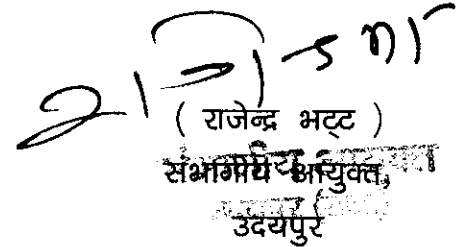 ( राजेन्द्र भट्ट )
संभागीय आयुक्त,
उदयपुर